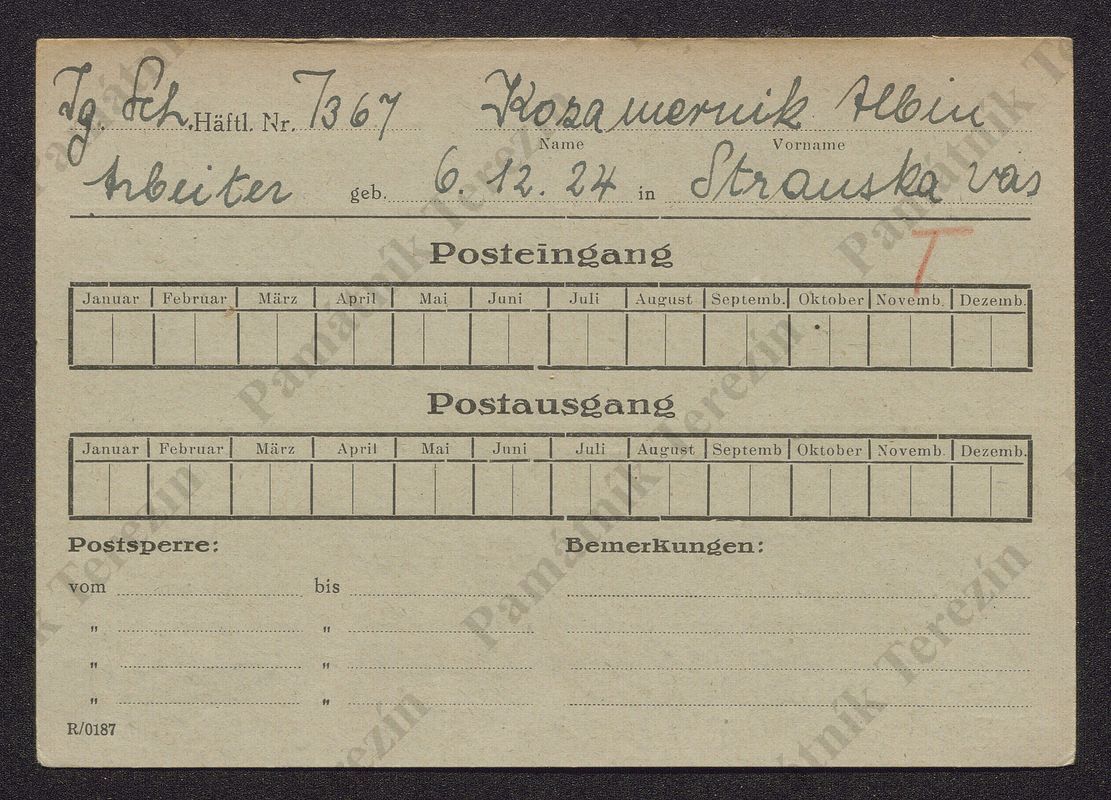 Jg. Sch. Häftl. Nr. 7367 Kozamernik Albin
Name Vorname
Arbeiter geb. 6. 12. 24 in Stranska vas
T
Posteingang
Januar Februar März April Mai Juni Juli August Septemb. Oktober Novemb. Dezemb.
Postausgang
Januar Februar März April Mai Juni Juli August Septemb Oktober Novemb. Dezemb.
Postsperre: Bemerkungen:
vom bis
" "
" "
" "
R/0187
Památník Terezín